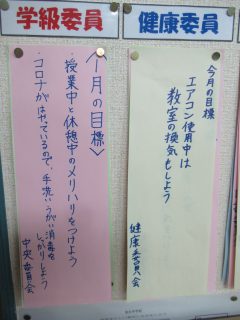 学級委員
〈1月の目標〉
・授業中と休憩中のメリハリをつけよう
・コロナがはやっているので、手洗いうがい消毒を
しっかりしよう
中央委員会
健康委員
今月の目標
エアコン使用中は
教室の換気もしよう
健康委員会